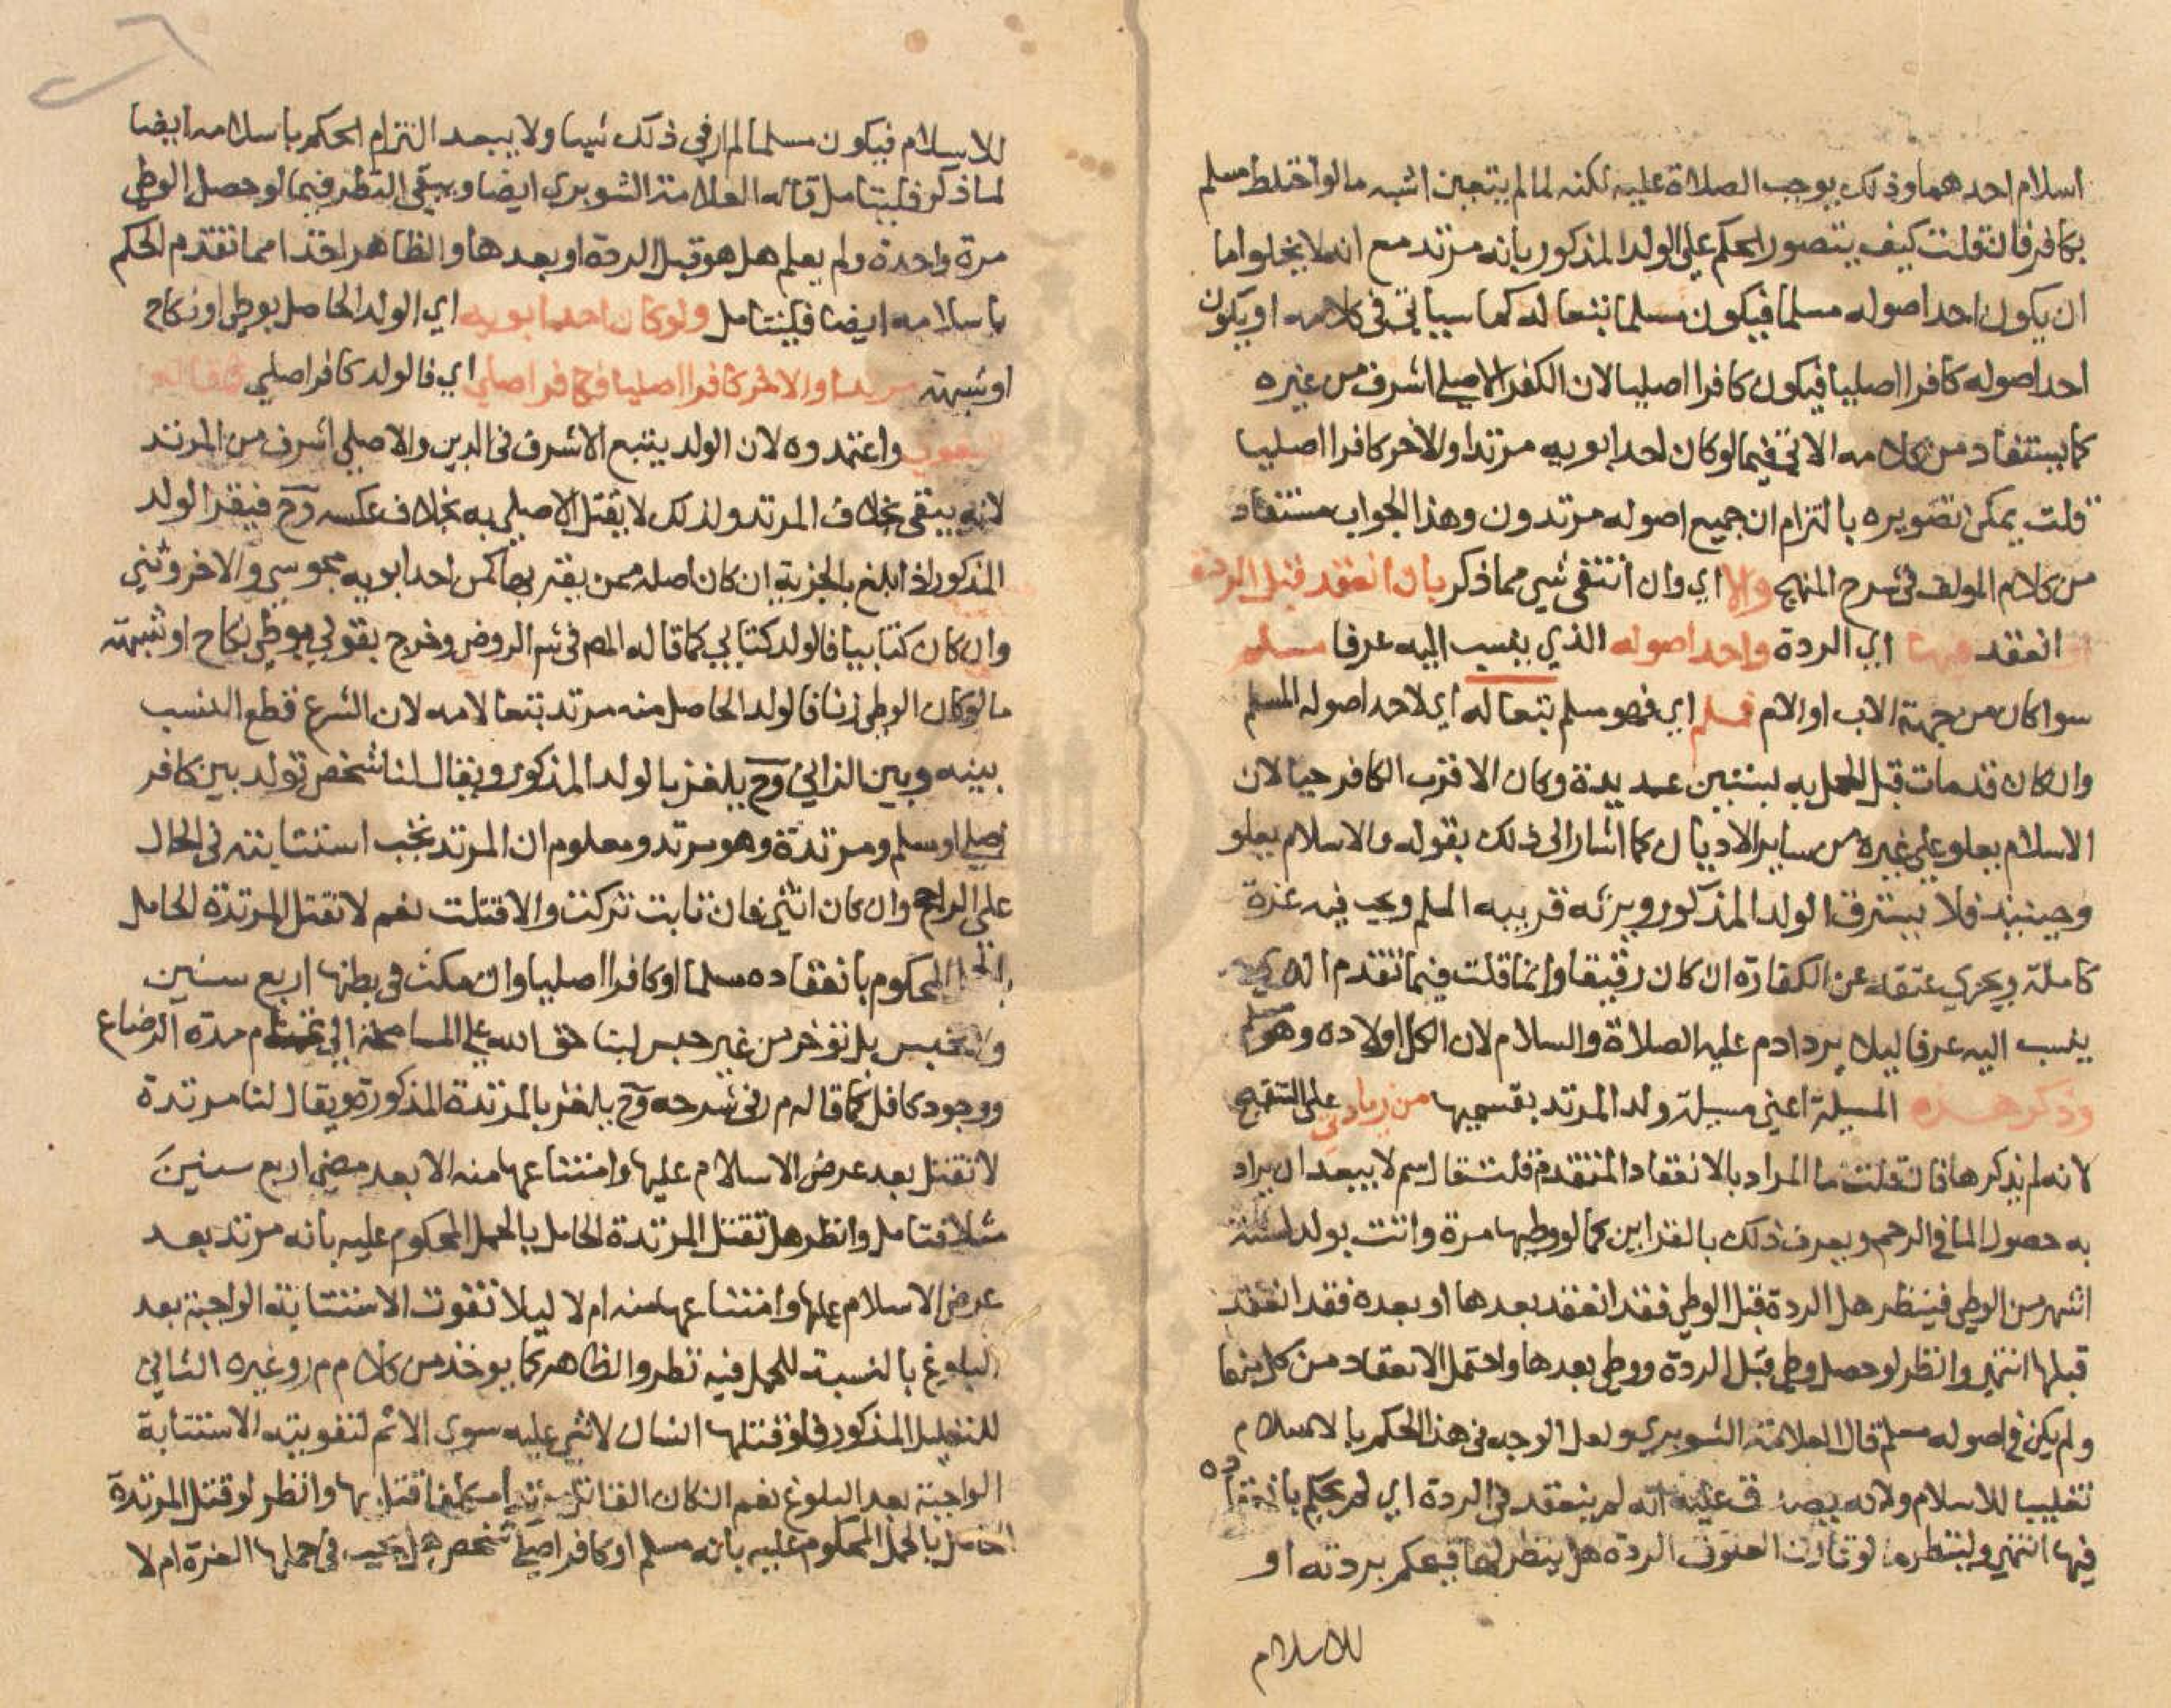 اسلام احدهما وذلك يوجب الصلاة عليه لكنه لما لم يتعين اشبه ما لو اختلط مسلم
بكافر فان قلت كيف يتصور الحكم على الولد المذكور بانه مرتد مع انه لا يخلو اما
ان يكون احد اصوله مسلما فيكون مسلما تبعا له كما سياتي في كلامه او يكون
احد اصوله كافرا اصليا فيكون كافرا اصليا لان الكفر الاصلي اشرف من غيره
كما يستفاد من كلامه الاتي فيما لو كان احد ابويه مرتدا والاخر كافرا اصليا
قلت يمكن تصويره بالتزام ان جميع اصوله مرتدون وهذا الجواب مستفاد
من كلام المولف في شرح المنهج والا اي وان انتفى شي مما ذكر بان انعقد قبل الردة
او انعقد فيها اي الردة واحد اصوله الذي ينسب اليه عرفا مسلم
سوا كان من جهة الاب او الام فمسلم اي فهو مسلم تبعا له اي لاحد اصوله المسلم
وان كان قد مات قبل الحمل به لسنين عديدة وكان الاقرب الكافر حيا لان
الاسلام يعلو على غيره من ساير الاديان كما اشار الى ذلك بقوله والاسلام يعلو
وحينيذ فلا يسترق الولد المذكور ويرثه قريبه المسلم ويجب فيه غرة
كاملة ويجزي عتقه عن الكفارة ان كان رقيقا وانما قلت فيما تقدم الذي
ينسب اليه عرفا ليلا يرد ادم عليه الصلاة والسلام لان الكل اولاده وهو مسلم
وذكر هذه المسيلة اعني مسيلة ولد المرتد بقسميها من زيادتي على التنقيح
لانه لم يذكرها فان قلت ما المراد بالانعقاد المتقدم قلت قال سم لا يبعد ان يراد
به حصول الما في الرحم ويعرف ذلك بالقراين كما لو وطيها مرة واتت بولد لستة
اشهر من الوطي فينظر هل الردة قبل الوطي فقد انعقد بعدها او بعده فقد انعقد
قبلها انتهى وانظر لو حصل وطي قبل الردة ووطي بعدها واحتمل الانعقاد من كل منهما
ولم يكن في اصوله مسلم قال العلامة الشوبري ولعل الوجه في هذا الحكم بالاسلام
تغليبا للاسلام ولانه يصدق عليه انه لم ينعقد في الردة اي لم يحكم بانعقاده
فيها انتهى ولينظر ما لو قارن العلوق الردة هل ينظر لها فيحكم بردته او
للاسلام
للاسلام فيكون مسلما لم ار في ذلك شيا ولا يبعد التزام الحكم باسلامه ايضا
لما ذكر فليتامل قاله العلامة الشوبري ايضا ويبقى النظر فيما لو حصل الوطي
مرة واحدة ولم يعلم هل هو قبل الردة او بعدها والظاهر اخذا مما تقدم الحكم
باسلامه ايضا فليتامل ولو كان احد ابويه اي الولد الحاصل بوطي او نكاح
او شبهة مرتدا والاخر كافرا اصليا فكافر اصلي اي فالولد كافر اصلي كما قاله
البغوي واعتمدوه لان الولد يتبع الاشرف في الدين والاصلي اشرف من المرتد
لانه يبقى بخلاف المرتد ولذلك لا يقتل الاصلي به بخلاف عكسه وح فيقر الولد
المذكور اذا بلغ بالجزية ان كان اصله ممن يقر بها كمن احد ابويه مجوسي والاخر وثني
وان كان كتابيا فالولد كتابي كما قاله المص في شرح الروض وخرج بقولي بوطي نكاح او شبهة
ما لو كان الوطي زنا فالولد الحاصل منه مرتد تبعا لامه لان الشرع قطع النسب
بينه وبين الزاني وح يلغز بالولد المذكور ويقال لنا شخص تولد بين كافر
اصلي او مسلم ومرتدة وهو مرتد ومعلوم ان المرتد تجب استتابته في الحال
على الراجح وان كان انثى فان تابت تركت والا قتلت نعم لا تقتل المرتدة الحامل
بالحمل المحكوم بانعقاده مسلما او كافرا اصليا وان مكث في بطنها اربع سنين
ولا تحبس بل توخر من غير حبس لبنا حق الله على المسامحة الى تمام مدة الرضاع
ووجود كافل كما قاله م ر في شرحه وح يلغز بالمرتدة المذكورة ويقال لنا مرتدة
لا تقتل بعد عرض الاسلام عليها وامتناعها منه الا بعد مضي اربع سنين
مثلا فتامل وانظر هل تقتل المرتدة الحامل بالحمل المحكوم عليه بانه مرتد بعد
عرض الاسلام عليها وامتناعها منه ام لا ليلا تفوت الاستتابة الواجبة بعد
البلوغ بالنسبة للحمل فيه نظر والظاهر كما يوخذ من كلام م ر وغيره الثاني
للتعليل المذكور فلو قتلها انسان لا شي عليه سوى الاثم لتفويته الاستتابة
الواجبة بعد البلوغ نعم ان كان القاتل مرتدا مثلها قتل بها وانظر لو قتل المرتدة
الحامل بالحمل المحكوم عليه بانه مسلم او كافر اصلي شخص هل يجب في حملها الغرة ام لا